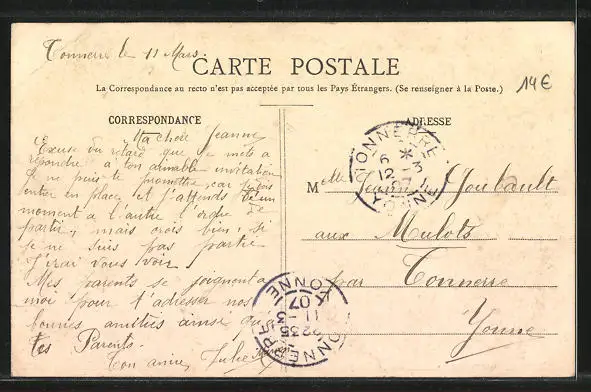 Tonnerre le 11 Mars.
CARTE POSTALE
14€
La Correspondance au recto n'est pas acceptée par tous les Pays Étrangers. (Se renseigner à la Poste.)
CORRESPONDANCE
Ma chère Jeanne
Excuse du retard que je mets a
répondre a ton aimable invitation
Je ne puis te promettre, car je dois
entrer en place et j'attends d'un
moment a l'autre l'ordre de
partir, mais crois bien, si
je ne suis pas partie
J'irai vous voir.
Mes parents se joignent a
moi pour t'adresser nos
bonnes amitiés ainsi qu'
tes Parents.
Ton amie, Julie
ADRESSE
TONNERRE
YONNE
Mlle Jeanne Goubault
aux Mulots
par Tonnerre
Yonne
TONNERRE
YONNE
11 - 3
07